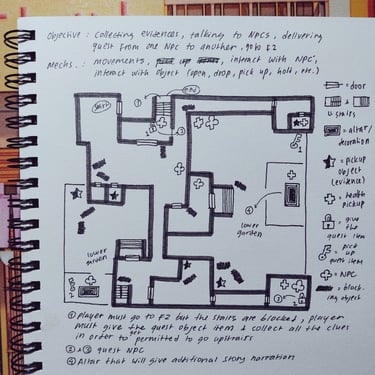 Objective : Collecting evidences, talking to NPCs, delivering
quest from one NPC to another, go to F2
Mechs. : movements, interact with NPC,
interact with object (open, drop, pick up, hold, etc.)
START
END
= door
= stairs
= altar/
decoration
= pickup
object
(evidence)
= health
pickup
= give the
quest item
= pick up
quest item
= NPC
= block-
ing object
lower
garden
lower
garden
① player must go to F2 but the stairs are blocked, player
must give the quest object item & collect all the clues
in order to get permitted to go upstairs
② & ③ quest NPC
④ Altar that will give additional story narration